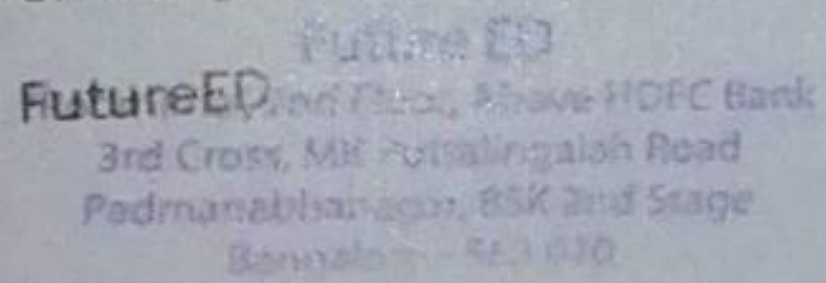 Future ED
FutureED Floor, Above HDFC Bank
3rd Cross, MK Puttalingaiah Road
Padmanabhanagar, BSK 2nd Stage
Bangalore -